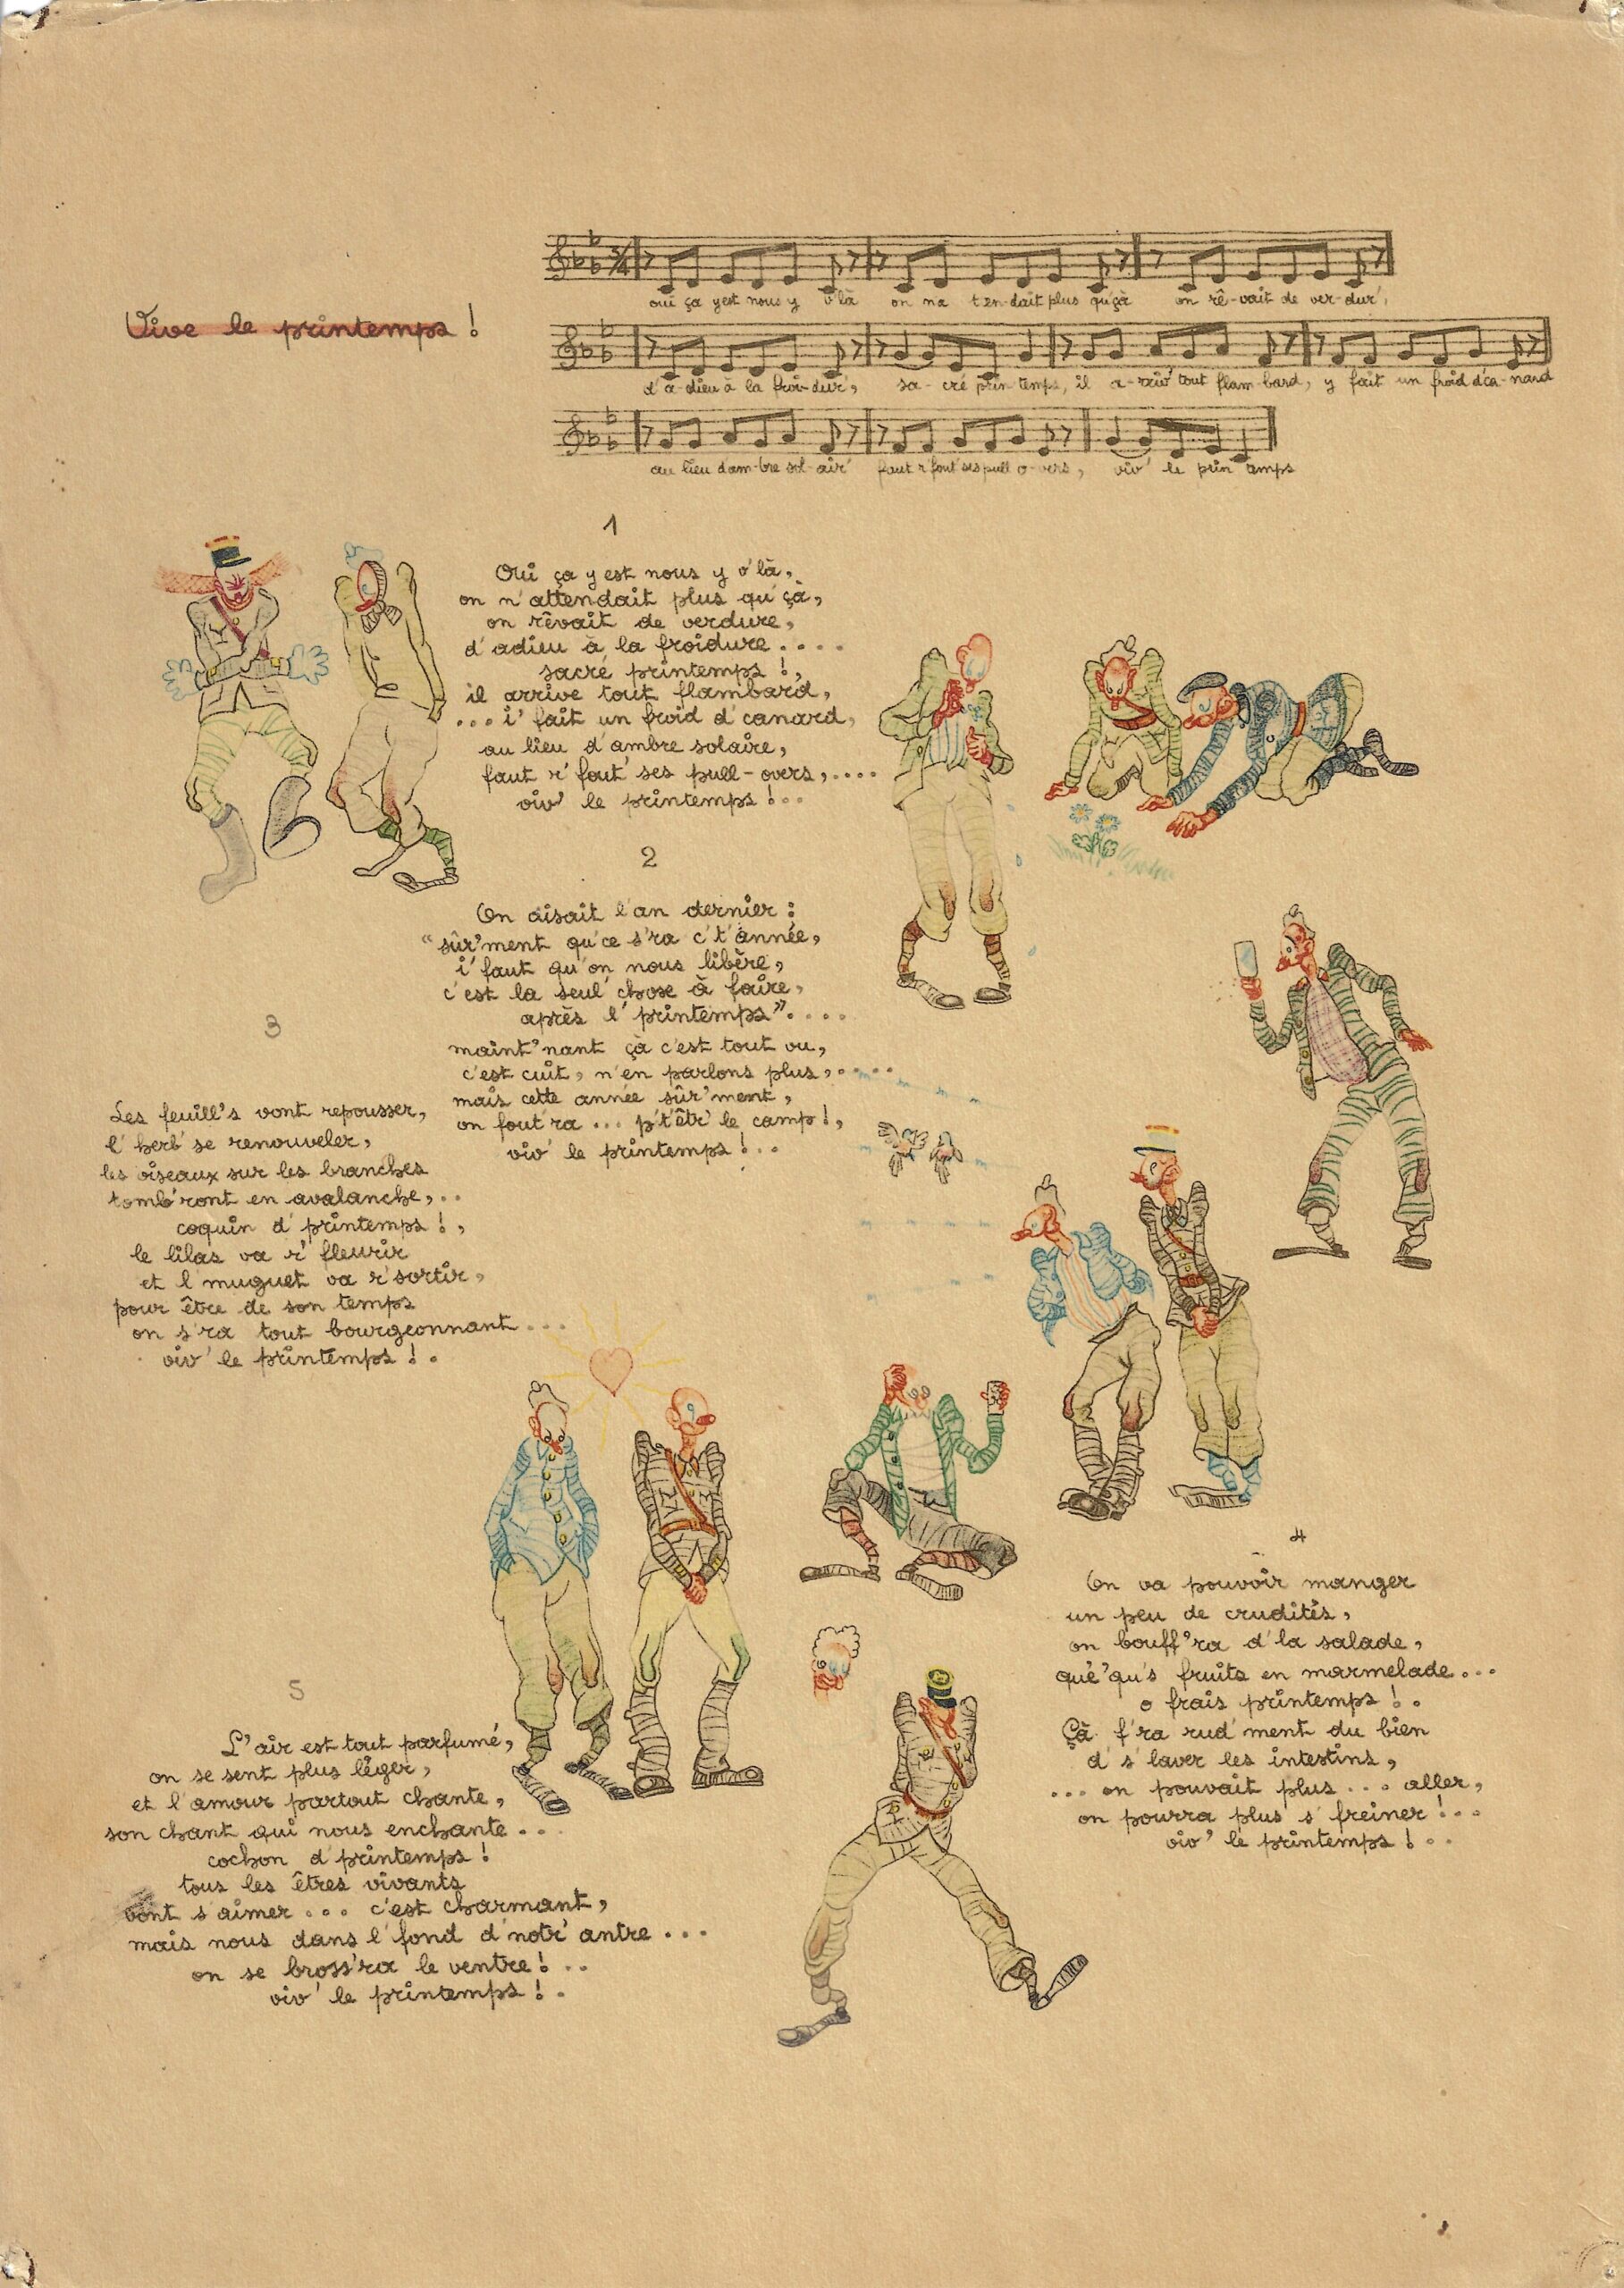 Vive le printemps !
3/4
oui ça y est nous y v'là on n'a t'en-dait plus qu'çà on rê-vait de ver-dur',
d'a-dieu à la froi-dur', sa-cré prin temps, il a-rriv' tout flam-bard, y fait un froid d'ca-nard
au lieu d'am-bre sol-air' faut r'fout' ses pull o-vers, viv' le prin temps
1
Oui ça y est nous y v'là,
on n'attendait plus qu'çà,
on rêvait de verdure,
d'adieu à la froidure . . . .
sacré printemps !,
il arrive tout flambard,
. . . i' fait un froid d'canard,
au lieu d'ambre solaire,
faut r'fout' ses pull-overs, . . . .
viv' le printemps ! . .
2
On disait l'an dernier :
"sûr'ment qu'ce s'ra c't'année,
i' faut qu'on nous libère,
c'est la seul' chose à faire,
après l'printemps" . . . .
maint'nant çà c'est tout vu,
c'est cuit, n'en parlons plus, . . . . .
mais cette année sûr'ment,
on fout'ra . . . p't'êtr' le camp !,
viv' le printemps ! . .
3
Les feuill's vont repousser,
l'herb' se renouveler,
les oiseaux sur les branches
tomb'ront en avalanche, . .
coquin d'printemps ! ,
le lilas va r'fleurir
et l'muguet va r'sortir,
pour être de son temps
on s'ra tout bourgeonnant . . .
viv' le printemps ! .
4
On va pouvoir manger
un peu de crudités,
on bouff'ra d'la salade,
què'qu's fruits en marmelade . . .
o frais printemps ! .
Çà f'ra rud'ment du bien
d's'laver les intestins,
. . . on pouvait plus . . . aller,
on pourra plus s'freiner ! . .
viv' le printemps ! . .
5
L'air est tout parfumé,
on se sent plus léger,
et l'amour partout chante,
son chant qui nous enchante . . .
cochon d'printemps !
tous les êtres vivants
vont s'aimer . . . c'est charmant,
mais nous dans l'fond d'notr' antre . . .
on se bross'ra le ventre ! . .
viv' le printemps ! .